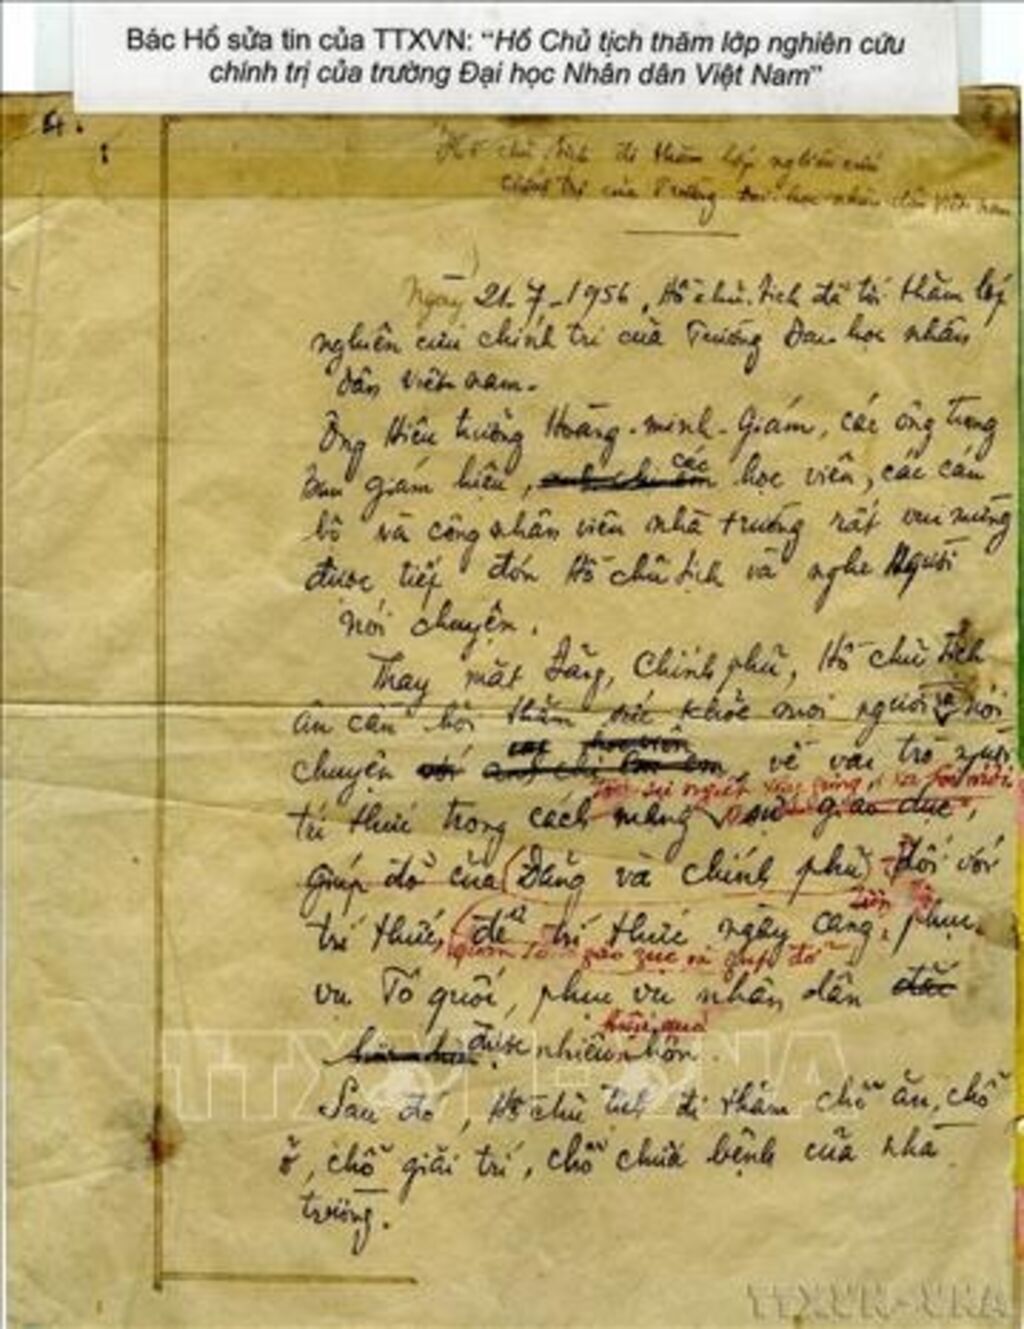 Bác Hồ sửa tin của TTXVN: “Hồ Chủ tịch thăm lớp nghiên cứu
chính trị của trường Đại học Nhân dân Việt Nam”
4.
Hồ chủ tịch đi thăm lớp nghiên cứu
chính trị của Trường Đại học nhân dân Việt nam
Ngày 21-7-1956, Hồ chủ tịch đã tới thăm lớp
nghiên cứu chính trị của Trường Đại học nhân
dân Việt nam.
Ông Hiệu trưởng Hoàng-minh-Giám, các ông trong
Ban giám hiệu, các học viên, các cán
bộ và công nhân viên nhà trường rất vui mừng
được tiếp đón Hồ chủ tịch và nghe Người
nói chuyện.
Thay mặt Đảng, Chính phủ, Hồ chủ tịch
ân cần hỏi thăm sức khỏe mọi người và nói
học viên
chuyện với anh chị em, về vai trò người
trí thức trong cách mạng, sự giáo dục,
giúp đỡ của Đảng và chính phủ đối với
trí thức, để trí thức ngày càng phục
quan tâm giáo dục và giúp đỡ
vụ Tổ quốc, phục vụ nhân dân đắc
hiệu quả
được nhiều hơn.
Sau đó, Hồ chủ tịch đi thăm chỗ ăn, chỗ
ở, chỗ giải trí, chỗ chữa bệnh của nhà
trường.
TTXVN - VNA
TTXVN - VNA